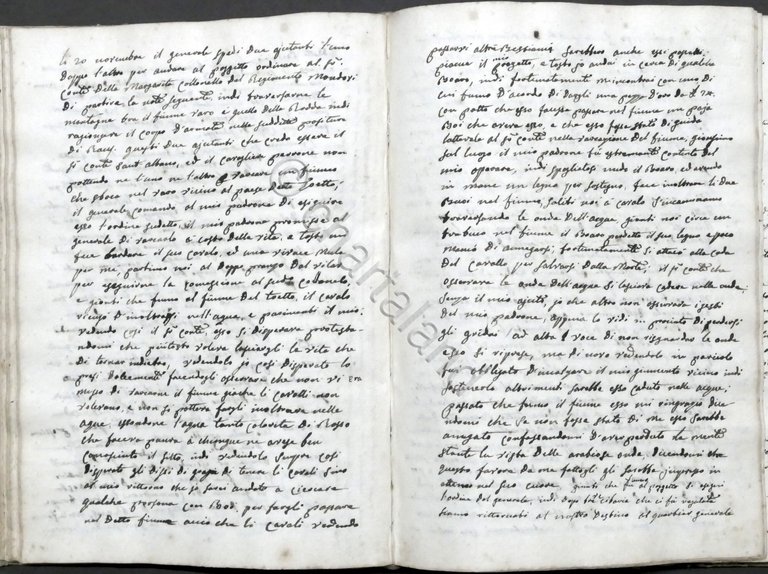 li 20 novembre il generale spedì due ajutanti l'uno
doppo l'altro per andare al poggetto ordinare al Sr
Conte della Margarita Collonello del Regimento Mondovì
di partire la notte seguente, indi traversarne le
montagne tra il fiume varo e quello della Rodda indi
ragiongere il corpo d'armata nella suddetta
di questi due ajutanti che credo essere il
Sr Conte Sant'albano, ed il cavagliere non
pottendo ne l'uno ne l'altro varcare un fiume
che sboca nel varo vicino al paese detto toetto;
il generale comandò al mio padrone di eseguire
esso l'ordine sudetto, il mio padrone promisse al
generale di varcarlo a costo della vita, e tosto mi
fece bardare il suo cavalo, ed una vivace Mula
per me, partimo noi al doppo pranzo dal
per eseguire la comissione al sudo Colonelo,
e gionti che fumo al fiume del toetto, il cavalo
ricusò d'inoltrarsi nell'aqua, e parimenti il mio;
vedendo così il Sr Conte esso si disperava protestan
domi che piutosto voleva lasciargli la vita che
di tornar indietro, vedendolo jo così disperato lo
presi dolcemente facendogli osservare che non vi era
mezzo di varcare il fiume giache li cavalli non
volevano, e non si potteva fargli inoltrare nelle
aque essendone l'aqua tanto colorita di Rosso
che faceva paura a chiunque ne avese ben
conosciuto il fatto, indi vedendolo sempre così
disperato gli dissi di grazia di tenere li cavali sino
al mio rittorno che jo sarei andato a ciercare
qualche persona con Bovi per fargli passare
nel detto fiume acciò che li cavali vedendo
passarvi altre Bestiami sarebbero anche essi passati;
piacue il mio progetto, e tosto jo andai in cerca di qualche
Boaro, indi fortunatamente m'incontrai con uno di
cui fumo d'acordo di dargli una pezza d'oro da £ 24.
con patto che esso facesse passare nel fiume un pajo
Boi che aveva esso, e che esso fosse stato di guida
latterale al Sr Conte nella varcazione del fiume, gionsimo
sul luogo il mio padrone fù estremamente contento del
mio opperare, indi spogliatosi nudo il Boaro, ed avendo
in mane un legno per sostegno, fece inoltrare li due
Buoi nel fiume, saliti noi a cavalo s'incaminamo
traversando le onde dell'acque, gionti noi circa un
trabuco nel fiume il Boaro perdette il suo legno e poco
mancò di annegarsi, fortunatamente si atacò alla coda
del Cavallo per salvarsi dalla Morte; il Sr Conte che
osservava le onde dell'acqua si lasciava cadere nelle onde
senza il mio ajuto, jo che altro non osservava i gesti
del mio padrone, appena lo vidi in procinto di perdersi
gli gridai ad alta voce di non risguardar le onde
esso si riprese, ma di novo vedendolo in pericolo
fui obbligato d'inalzare il mio giumento vicino indi
sostenerlo altrimenti sarebbe esso caduto nelle acque;
passato che fumo il fiume esso mi ringraziò dicen
domi che se non fosse stato di me esso sarebbe
anegato confessandomi d'aver perduto la mente
stant la vista delle arabiose onde, dicendomi che
questo favore da me fattogli gli sarebbe impresso in
eterno nel suo cuore. gionti che fumo al poggetto si esseguì
l'ordine del generale, indi dopo
siamo rittornati al nostro destino al quartier generale